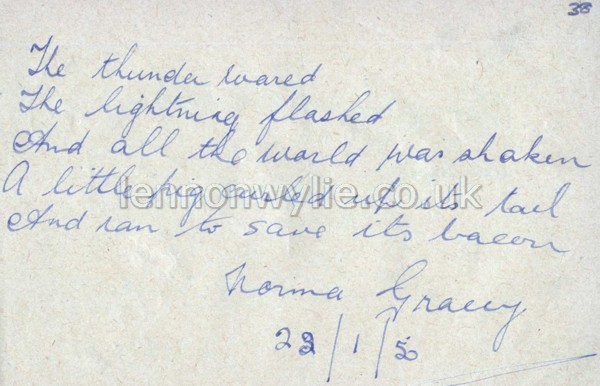 38
The thunder wared
The lightning flashed
And all the world was shaken
A little pig curled up its tail
lennonwylie.co.uk
And ran to save its bacon
Norma Gracey
22/1/50